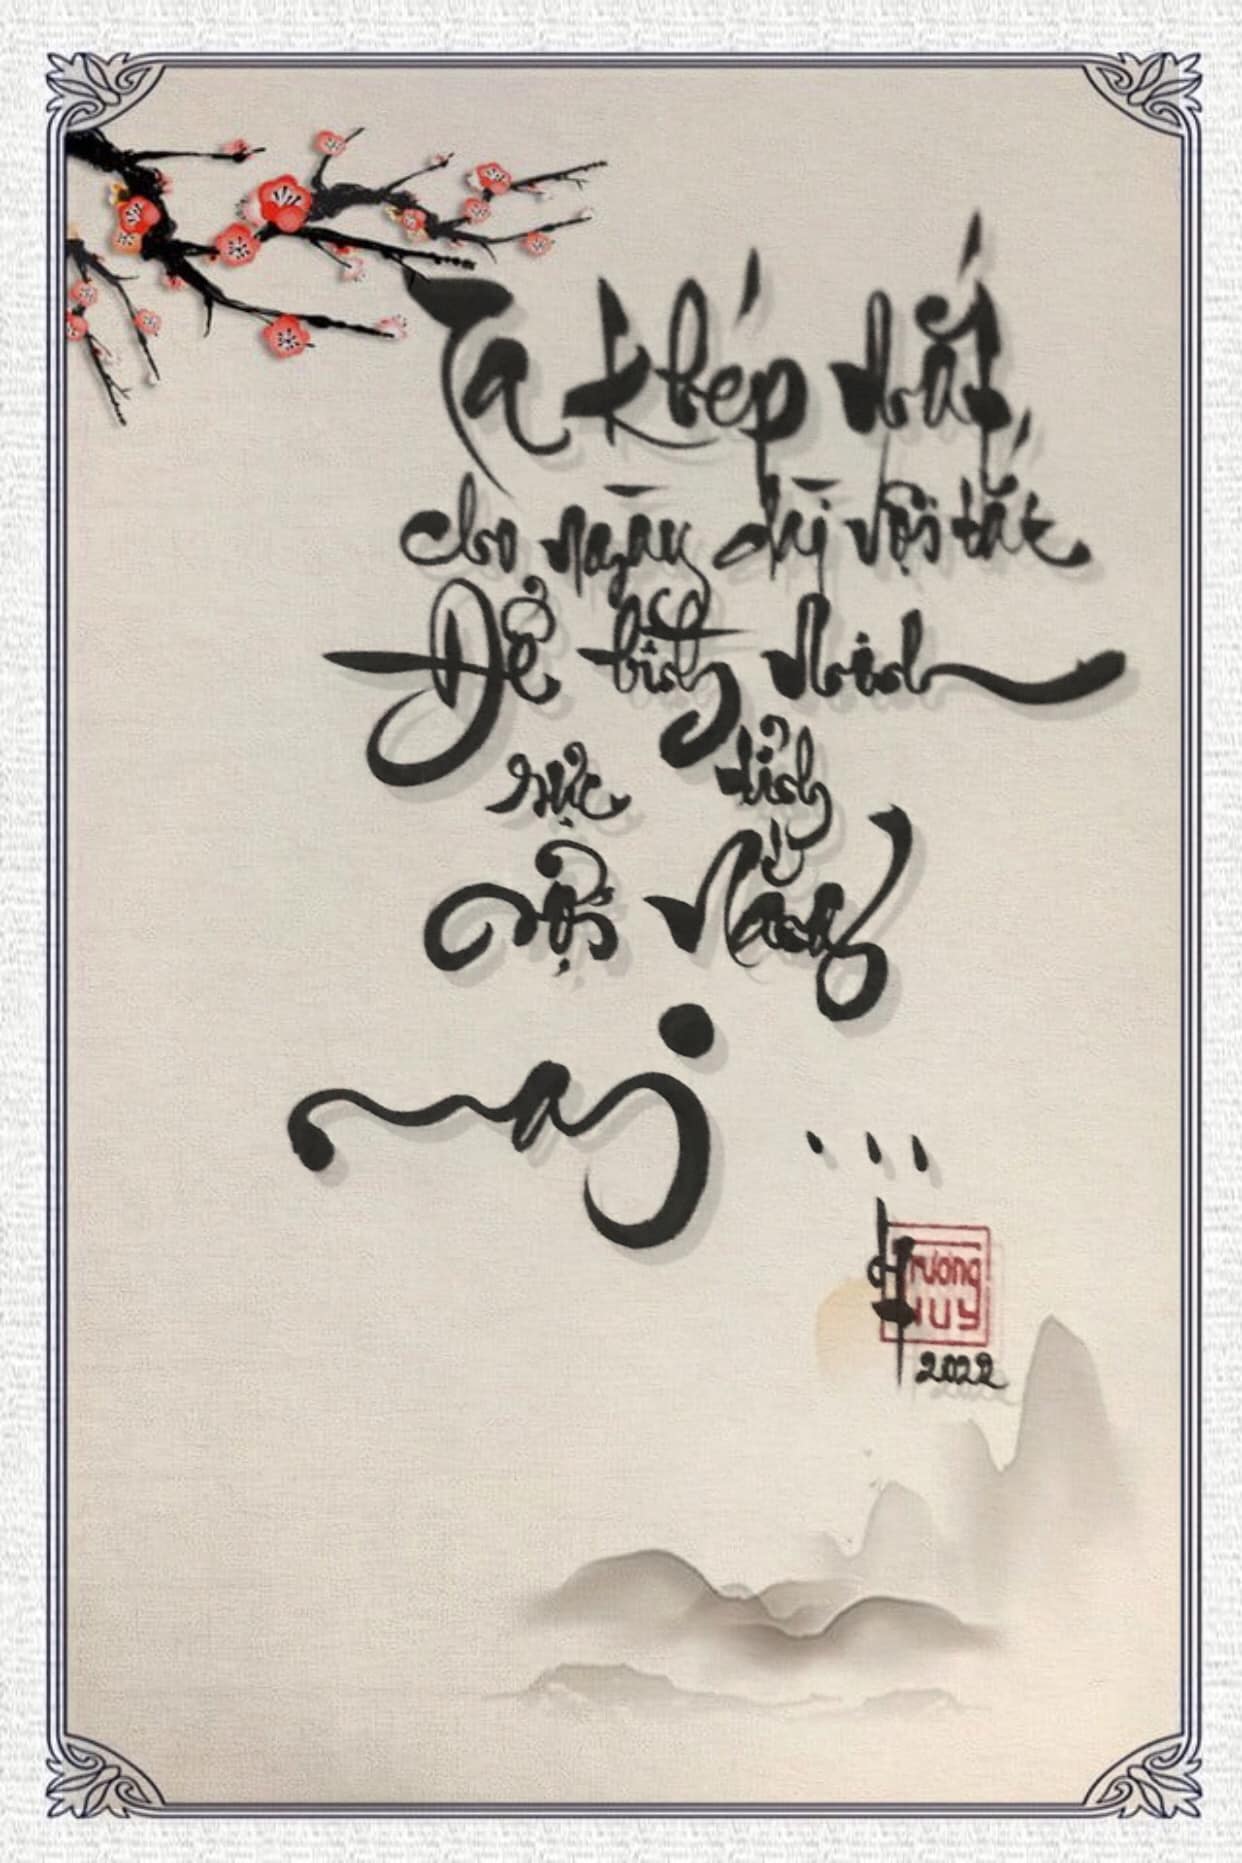 Ta khép mắt
cho ngày dài vội tắt
Để bình minh
rực đỉnh
cội nắng
mai ...
Trương
HUY
2022